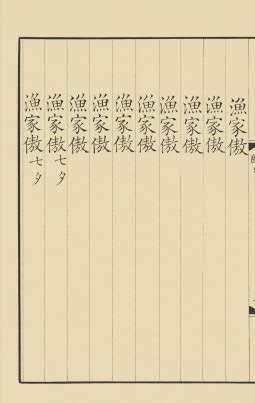 漁家傲
漁家傲
漁家傲
漁家傲
漁家傲
漁家傲
漁家傲
漁家傲
漁家傲七夕
漁家傲七夕